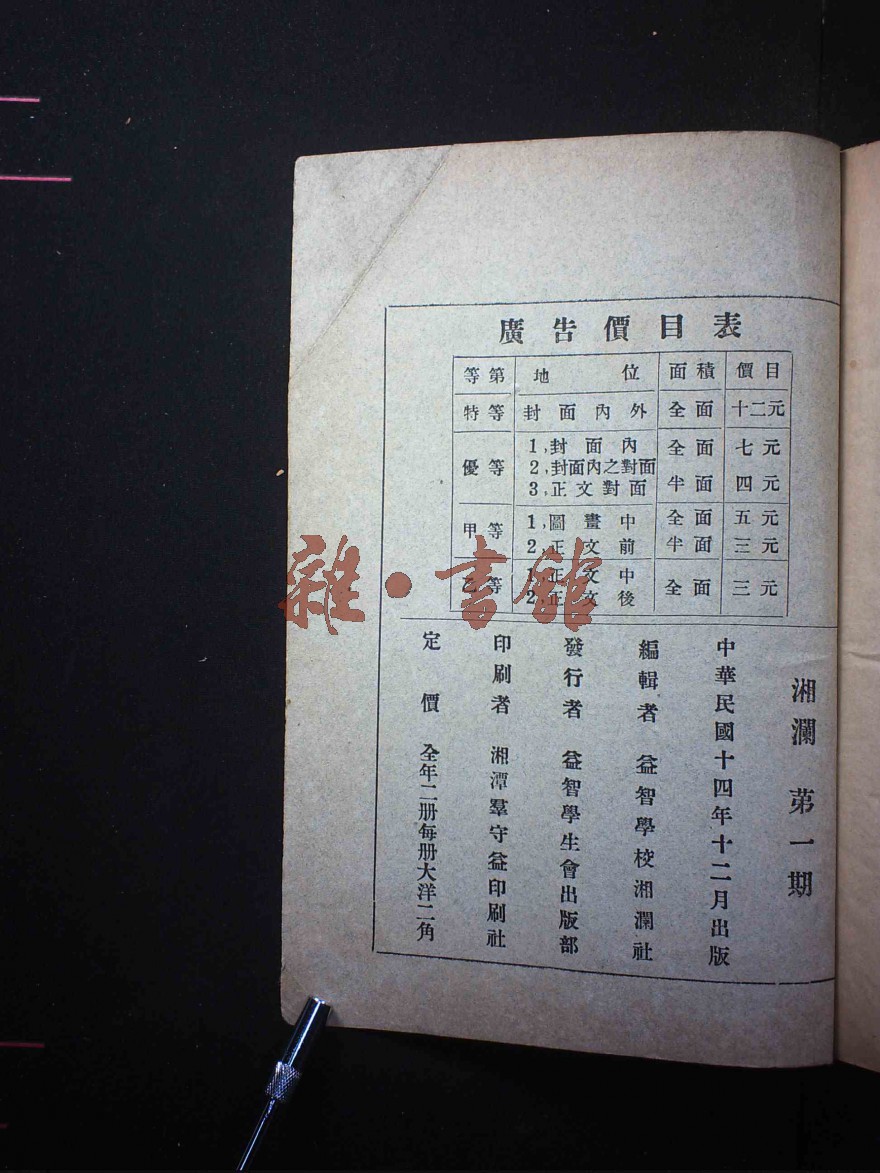 廣告價目表
等第 地位 面積 價目
特等 封面內外 全面 十二元
優等 1,封面內 全面 七元
2,封面內之對面
3,正文對面 半面 四元
甲等 1,圖畫中 全面 五元
2,正文前 半面 三元
乙等 1,正文中 全面 三元
2,正文後
湘瀾 第一期
中華民國十四年十二月出版
編輯者 益智學校湘瀾社
發行者 益智學生會出版部
印刷者 湘潭羣守益印刷社
定價 全年二册每册大洋二角
雜·書館